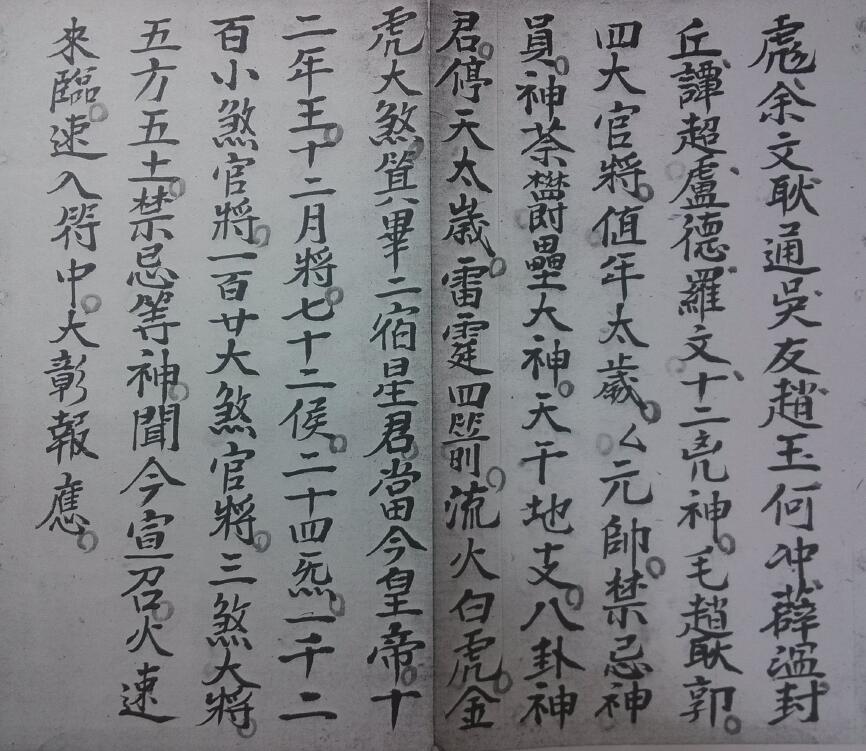 彪余文耿通吳友趙玉何冲薛溫封
丘譚超盧德羅文十二𠒋神毛趙耿郭
四大官將值年太歲厶元帥禁忌神
員神荼鬱壘大神天干地支八卦神
君停天太歲雷霆四監副流火白虎金
虎大煞箕畢二宿星君當今皇帝十
二年王十二月將七十二侯二十四炁一千二
百小煞官將一百廿大煞官將三煞大將
五方五土禁忌等神聞今宣召火速
來臨速入符中大彰報應